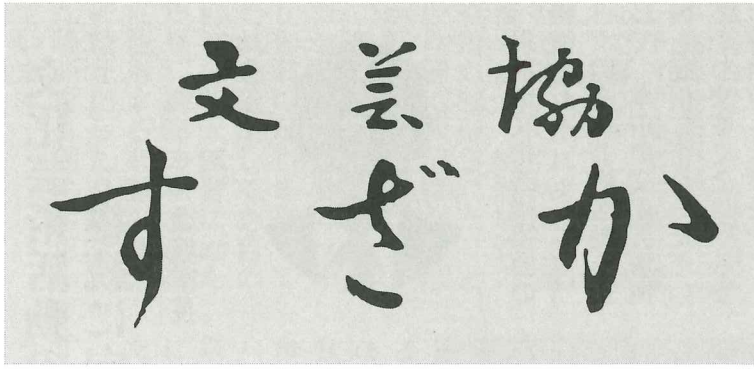 文芸協
すざか